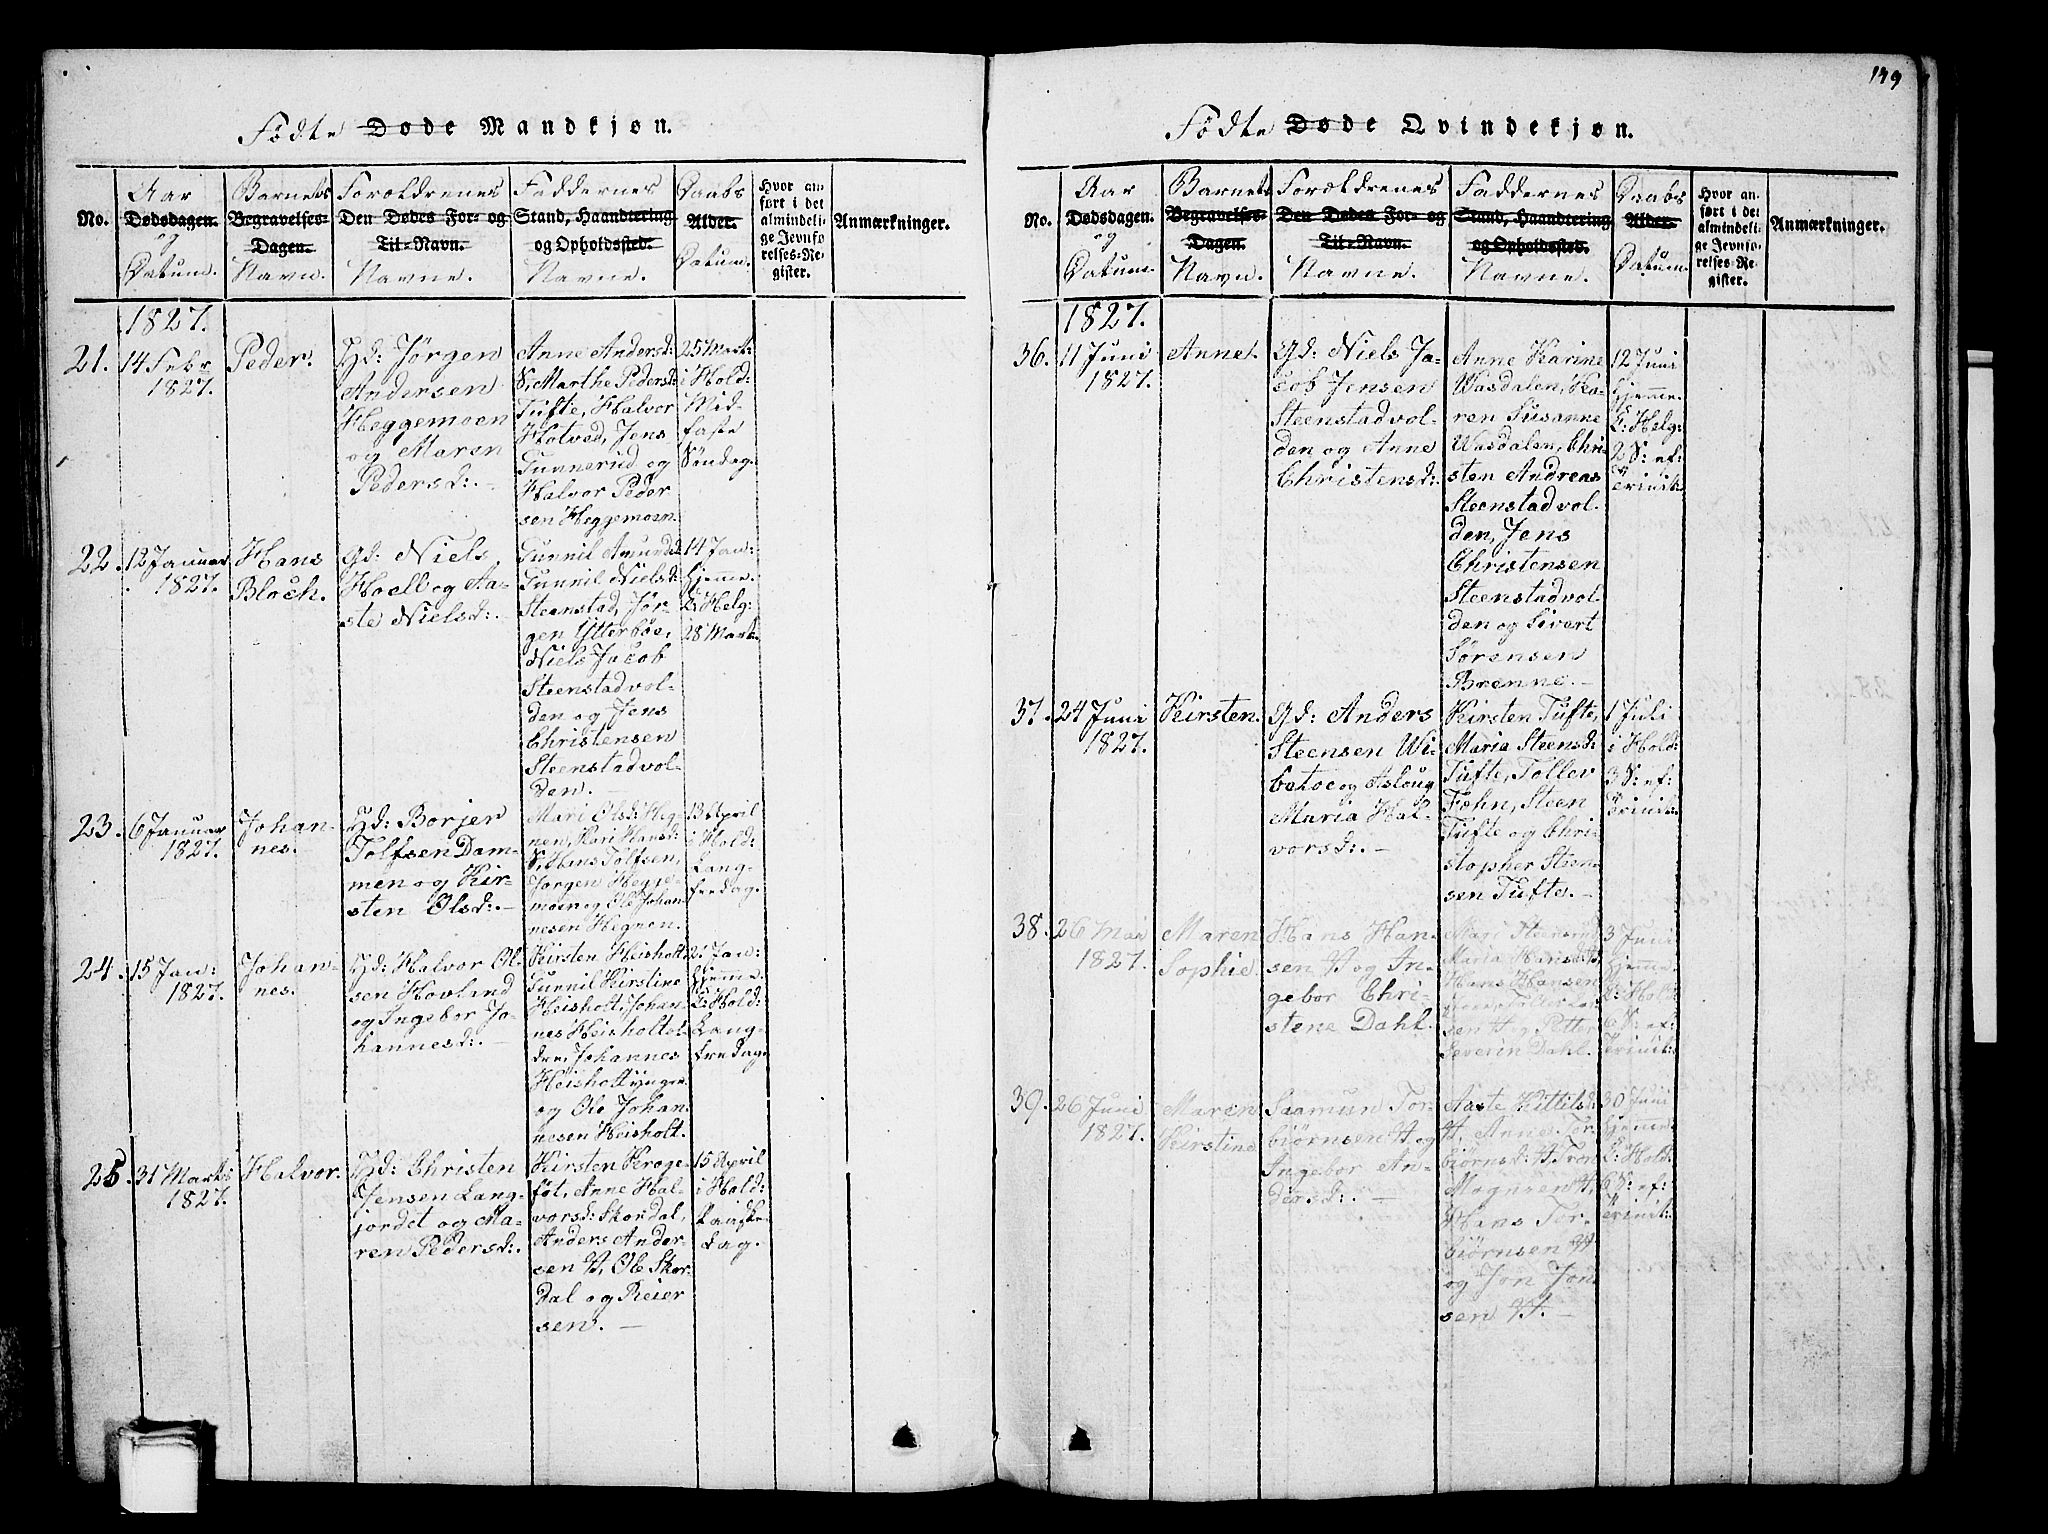 149
Fødte Døde Mandkjøn.
No.
Aar
Dødsdagen.
og
Datum.
Barnets
Begravelses-
Dagen.
Navn.
Forældrenes
Den Dødes For- og
Til-Navn.
Navne.
Faddernes
Stand, Haandtering
og Opholdssted.
Navne.
Daabs
Alder.
Datum.
Hvor an-
ført i det
almindeli-
ge Jevnfø-
relses-Re-
gister.
Anmærkninger.
1827.
21.
14 Febr
1827.
Peder.
Hd: Jørgen
Andersen
Heggemoen
og Maren
Pedersd:.-
Anne Andersd:
S, Marthe Pedersd:
Tufte, Halvor
Holtved, Jens
Gunnerud og
Halvor Peder
sen Heggemoen.
25 Marts
i Hold:
Mid-
faste
Søndag.
22.
12 Januar
1827.
Hans
Bloch.
Gd: Niels
Hoell og Aa-
ste Nielsd:.-
Gunnil Amundsd
Gunnil Nielsd:
Steenstad, Jør-
gen Ytterbøe,
Niels Jacob
Steenstadvol-
den og Jens
Christensen
Steenstadvol-
den.-
14 Jan:
hjemme.
i Helg:
28 Marts.
23.
6 Januar
1827.
Johan-
nes.
Hd: Borjer
Tolfsen Dam-
men og Kir-
sten Olsd:.-
Mari Olsd: Heg-
nen, Kari Hansd:
S, Hans Tolfsen,
Jorgen Hegge-
moen og Ole Johan-
nesen Hegnen.
13 April
i Hold:
Lang-
fredag.
24.
15 Jan:
1827.
Johan-
nes.
Hd: Halvor Ol-
sen Hovland
og Ingebor Jo-
hannesd:.-
Kirsten Heisholt
Gunnil Kirstine
Heisholt, Johan-
nes Heisholt el-
dre, Johannes
Heisholt yngre
og Ole Johan-
nesen Heisholt.
21 Jan:
hjemme.
i Hold:
Lang-
fredag.
25
31 Marts
1827.
Halvor.
Hd: Christen
Jensen Lang-
jordet og Ma-
ren Pedersd:.
Kirsten Krage-
føt, Anne Hal-
vorsd: Skordal,
Anders Ander-
sen H, Ole Skor-
dal og Reier
sen.-
15 April
i Hold:
Paaske-
dag.
Fødte Døde Qvindekjøn.
No.
Aar
Dødsdagen.
og
Datum.
Barnets
Begravelses-
Dagen.
Navn.
Forældrenes
Den Dødes For- og
Til-Navn.
Navne.
Faddernes
Stand, Haandtering
og Opholdssted.
Navne.
Daabs
Alder.
Datum.
Hvor an-
ført i det
almindeli-
ge Jevnfø-
relses-Re-
gister.
Anmærkninger.
1827.
36.
11 Juni
1827.
Anne.
Gd: Niels Ja-
cob Jensen
Steenstadvol-
den og Anne
Christensd:
Anne Karine
Wasdalen, Ka-
ren Susanne
Wasdalen, Chri-
sten Andreas
Steenstadvol-
den, Jens
Christensen
Steenstadvol-
den og Sivert
Sørensen
Brenne.-
12 Juni
hjemme.
i Helg:
2 S: ef:
Trinit:
37.
24 Juni
1827.
Kirsten.
Gd: Anders
Steensen Wi-
betoe og Aslaug
Maria Hal-
vorsd:.-
Kirsten Tufte,
Maria Steensd:
Tufte, Tollev
Fæhn, Steen
Tufte og Chri-
stopher Steen-
sen Tufte.-
1 Juli
i Hold:
3 S: ef:
Trinit:
38.
26 Mai
1827.
Maren
Sophie.
Hans Han-
sen H og In-
gebor Chri-
stene Dahl.
Mari Steensrud
Maria Hansd: H,
Hans Hansen
sen H og Petter
Severin Dahl.
3 Juni
hjemme.
i Hold:
6 S: ef:
Trinit:
39.
26 Juni
1827.
Maren
Kirstine
Saamun Tor-
biørnsen H og
Ingebor An-
dersd:.-
Aaste Kittilsd:
H, Anne Tor-
biørnsd: H, Tron
Mognsen H,
Hans Tor-
biørnsen H
og Jon Jon-
sen H.-
30 Juni
hjemme.
i Hold:
6 S: ef:
Trinit: